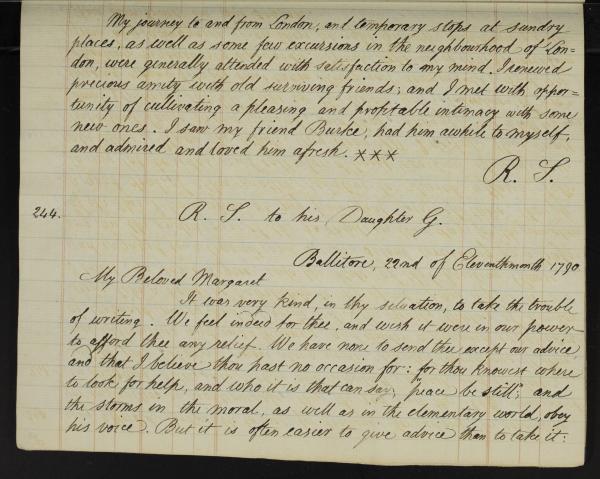 My journey to and from London, and temporary stops at sundry
places, as well as some few excursions in the neighbourhood of Lon=
don, were generally attended with satisfaction to my mind. I renewed
precious amity with old surviving friends; and I met with oppor=
tunity of cultivating a pleasing and profitable intimacy with some
new ones. I saw my friend Burke, had him awhile to myself,
and admired and loved him afresh. xxx
R. S.
244. R. S. to his Daughter G.
Ballitore, 22nd of Eleventhmonth 1790.
My Beloved Margaret
It was very kind, in thy situation, to take the trouble
of writing. We feel indeed for thee, and wish it were in our power
to afford thee any relief. We have none to send thee except our advice,
and that I believe thou hast no occasion for: for thou knowest where
to look for help, and who it is that can say, peace be still; and
the storms in the moral, as well as in the elementary world, obey
his voice. But it is often easier to give advice than to take it: